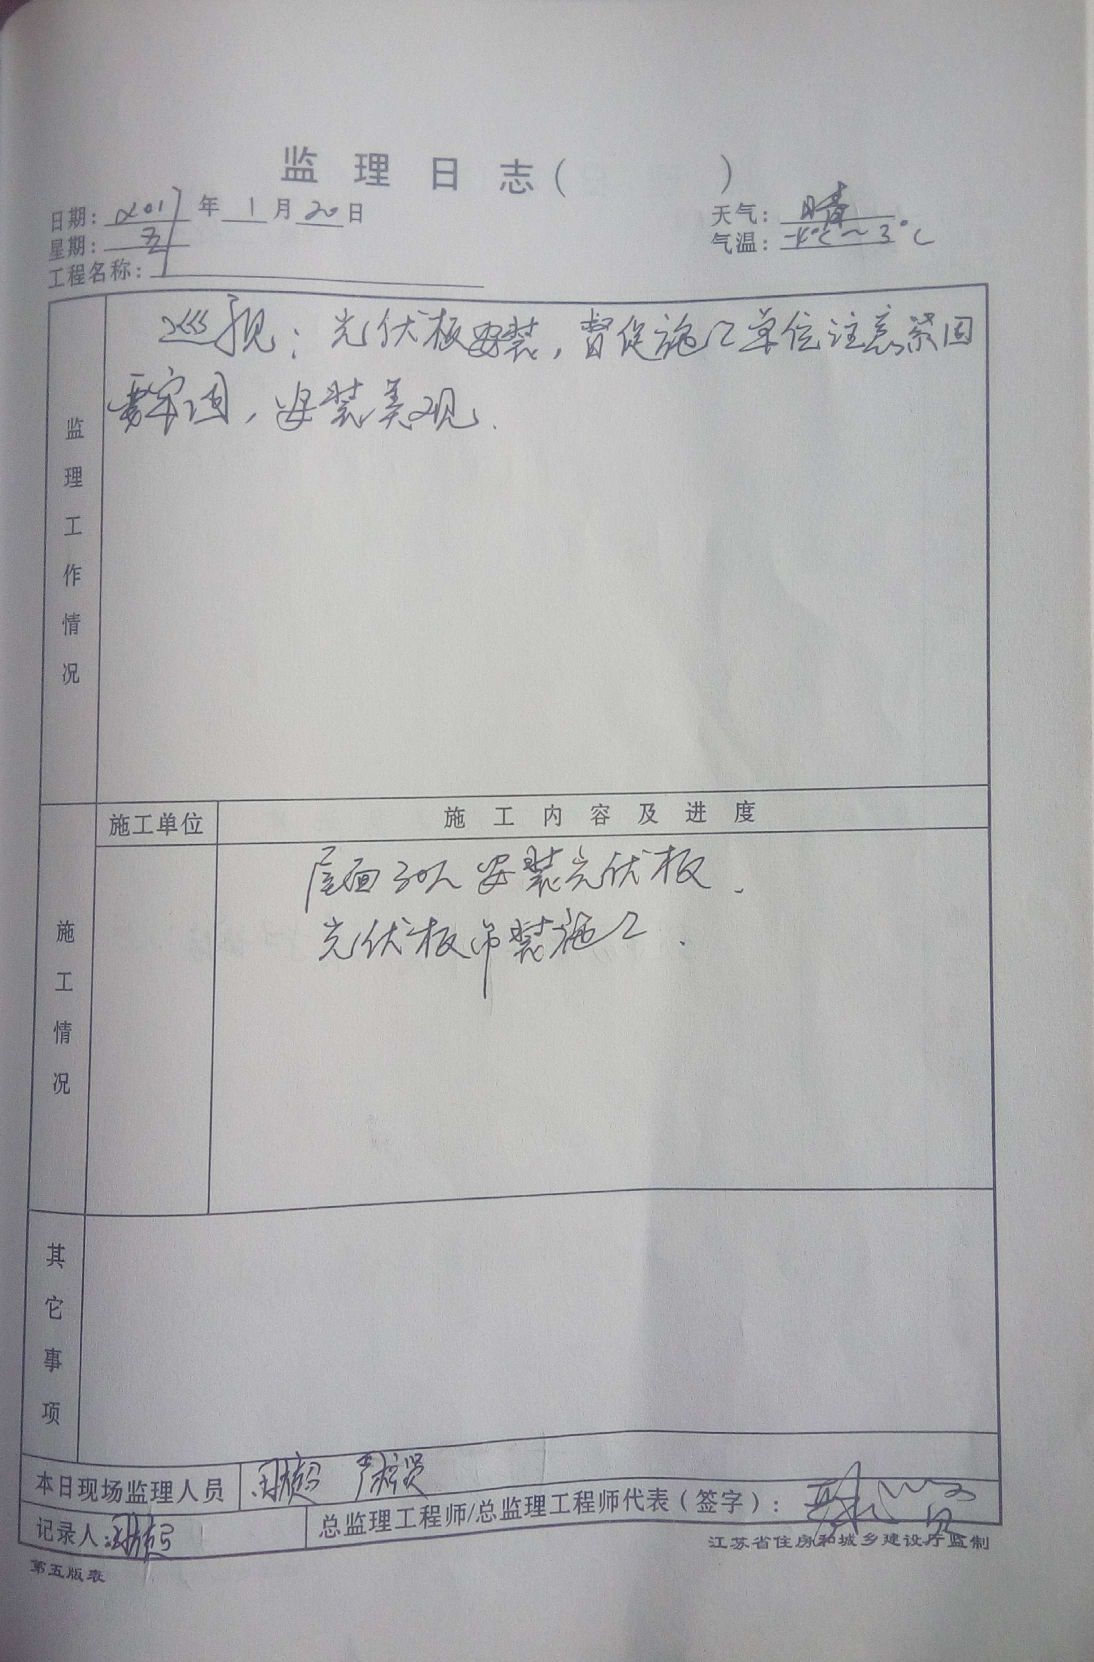 监理日志（ ）
日期：2017年1月20日
天气：晴
星期：五
气温：-4℃～3℃
工程名称：
监理工作情况
巡视：光伏板安装，督促施工单位注意紧固
要牢固，安装美观.
施工单位
施工内容及进度
施工情况
屋面30人安装光伏板.
光伏板吊装施工.
其它事项
本日现场监理人员
记录人：
总监理工程师/总监理工程师代表（签字）：
江苏省住房和城乡建设厅监制
第五版表